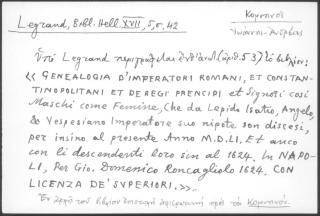 Legrand, Bibl. Hell. XVII, 5, σ. 42
Κομνηνοί
Ἰωάννης-Ἀνδρέας
Ὑπό Legrand περιγράφεται (ἀριθ. 53) τό βιβλίον:
« GENEALOGIA D'IMPERATORI ROMANI, ET CONSTAN-
TINOPOLITANI ET DE REGI PRENCIPI et Signori così
Maschi come Femine, Che da Lepido Isatio, Angelo,
& Vespesiano Imperatore suo nipote son discesi,
per insino al presente Anno M.D.LI, Et anco
con li descendenti loro sin al 1624. In NAPO-
LI, Per Gio. Domenico Roncagliolo 1624. CON
LICENZA DE' SUPERIORI.»
Ἐν ἀρχῇ τοῦ βιβλίου ἐπιστολή ἀφιερωτική πρός τόν Κομνηνόν.